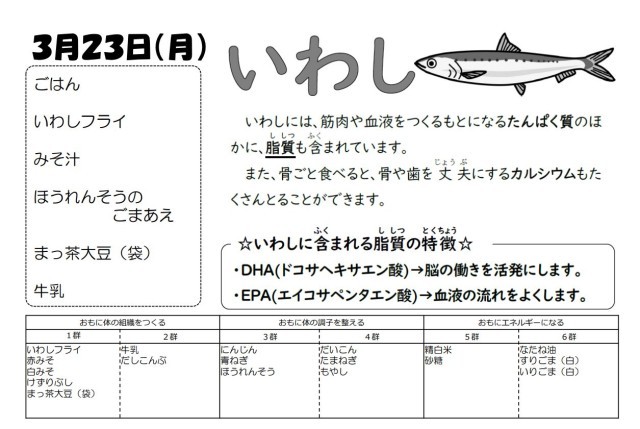 3月23日(月)
ごはん
いわしフライ
みそ汁
ほうれんそうの
ごまあえ
まっ茶大豆（袋）
牛乳
いわし
いわしには、筋肉や血液をつくるもとになるたんぱく質のほ
かに、脂質も含まれています。
また、骨ごと食べると、骨や歯を丈夫にするカルシウムもた
くさんとることができます。
☆いわしに含まれる脂質の特徴☆
・DHA(ドコサヘキサエン酸)→脳の働きを活発にします。
・EPA(エイコサペンタエン酸)→血液の流れをよくします。
おもに体の組織をつくる おもに体の調子を整える おもにエネルギーになる
1群 2群 3群 4群 5群 6群
いわしフライ 牛乳 にんじん だいこん 精白米 なたね油
赤みそ だしこんぶ 青ねぎ たまねぎ 砂糖 すりごま（白）
白みそ ほうれんそう もやし いりごま（白）
けずりぶし
まっ茶大豆（袋）